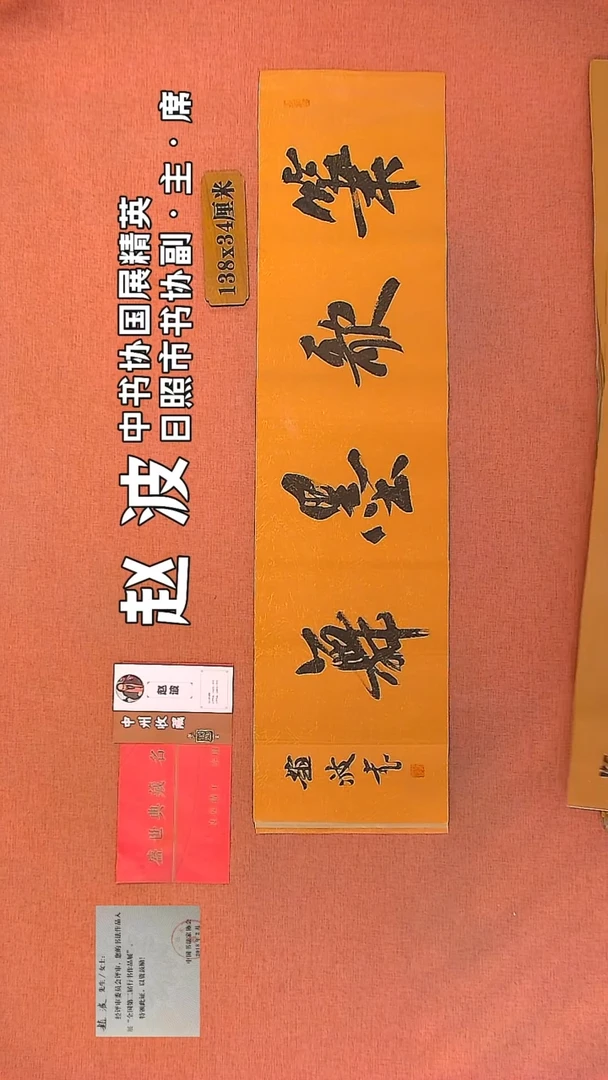 赵波
中书协国展精英
日照市书协副·主·席
138x34厘米
筆歌墨舞
趙波书
赵波
中州收藏
盛世典藏
赵波 先生/女士：
经评审委员会评审，您的书法作品入
展“全国第二届行书作品展”，
特颁此证，以资鼓励！
中国书法家协会